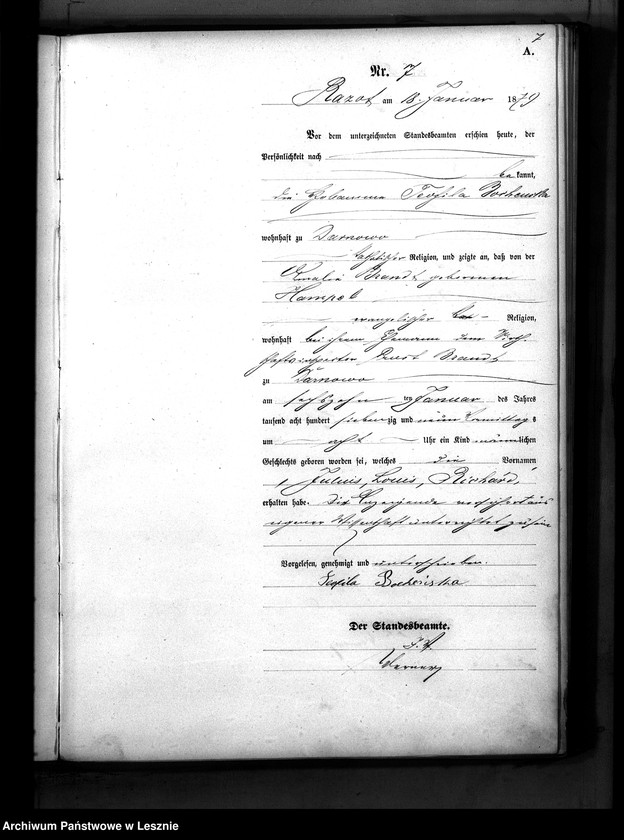 7
A.
Nr. 7
Razot am 18. Januar 1879
Vor dem unterzeichneten Standesbeamten erschien heute, der
Persönlichkeit nach
bekannt,
die Hebamme Teofila
wohnhaft zu Darnowo
katholischer Religion, und zeigte an, daß von der
Amalie Brandt geborenen
Hampel
evangelischer Religion,
wohnhaft bei ihrem Ehemann dem
Ernst Brandt
zu Darnowo
am sechszehn ten Januar des Jahres
tausend acht hundert siebenzig und neun Vormittags
um acht Uhr ein Kind männlichen
Geschlechts geboren worden sei, welches die Vornamen
Julius, Louis, Richard,
erhalten habe. Die Anzeigende versichert aus
eigener Wissenschaft unterrichtet zu sein
Vorgelesen, genehmigt und unterschrieben.
Teofila Bocheńska
Der Standesbeamte.
Archiwum Państwowe w Lesznie